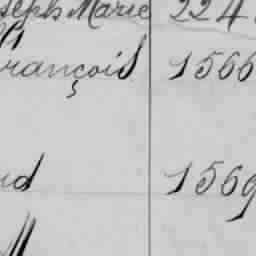 seph Marie 224
François 1566
ud 1569